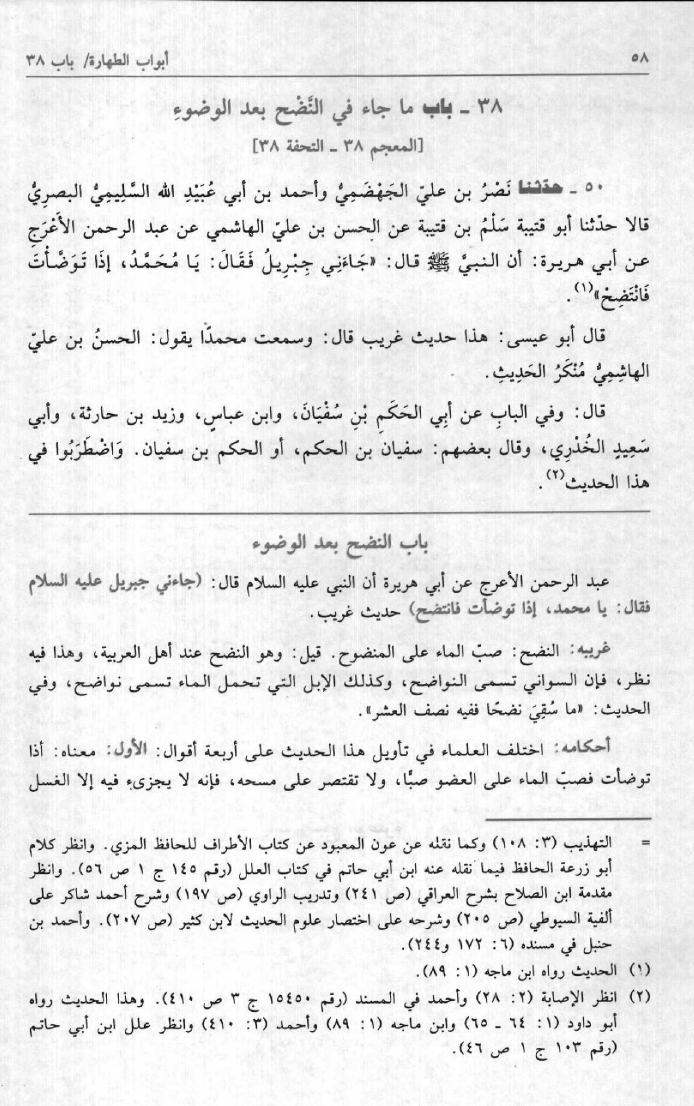 ٥٨
أبواب الطهارة/ باب ٣٨
٣٨ ـ باب ما جاء في النَّضْح بعد الوضوءِ
[المعجم ٣٨ ـ التحفة ٣٨]
٥٠ ـ حدّثنا نَصْرُ بن عليّ الجَهْضَمِيُّ وأحمد بن أبي عُبَيْدِ الله السَّلِيمِيُّ البصريُّ
قالا حدّثنا أبو قتيبة سَلْمُ بن قتيبة عن الحسن بن عليّ الهاشمي عن عبد الرحمن الأَعْرَج
عن أبي هريرة: أن النبيَّ ﷺ قال: «جَاءَنِي جِبْرِيلُ فَقَالَ: يَا مُحَمَّدُ، إذَا تَوَضَّأْتَ
فَانْتَضِحْ»(١).
قال أبو عيسى: هذا حديث غريب قال: وسمعت محمدًا يقول: الحسنُ بن عليّ
الهاشِمِيُّ مُنْكَرُ الحَدِيثِ.
قال: وفي البابِ عن أبِي الحَكَمِ بْنِ سُفْيَانَ، وابن عباسٍ، وزيد بن حارثة، وأبي
سَعِيدٍ الخُدْرِي، وقال بعضهم: سفيان بن الحكم، أو الحكم بن سفيان. وَاضْطَرَبُوا في
هذا الحديث(٢).
باب النضح بعد الوضوء
عبد الرحمن الأعرج عن أبي هريرة أن النبي عليه السلام قال: (جاءني جبريل عليه السلام
فقال: يا محمد، إذا توضأت فانتضح) حديث غريب.
غريبه: النضح: صبّ الماء على المنضوح. قيل: وهو النضح عند أهل العربية، وهذا فيه
نظر، فإن السواني تسمى النواضح، وكذلك الإبل التي تحمل الماء تسمى نواضح، وفي
الحديث: «ما سُقِيَ نضحًا ففيه نصف العشر».
أحكامه: اختلف العلماء في تأويل هذا الحديث على أربعة أقوال: الأول: معناه: أذا
توضأت فصبّ الماء على العضو صبًّا، ولا تقتصر على مسحه، فإنه لا يجزىء فيه إلا الغسل
= التهذيب (٣: ١٠٨) وكما نقله عن عون المعبود عن كتاب الأطراف للحافظ المزي. وانظر كلام
أبو زرعة الحافظ فيما نقله عنه ابن أبي حاتم في كتاب العلل (رقم ١٤٥ ج ١ ص ٥٦). وانظر
مقدمة ابن الصلاح بشرح العراقي (ص ٢٤١) وتدريب الراوي (ص ١٩٧) وشرح أحمد شاكر على
ألفية السيوطي (ص ٢٠٥) وشرحه على اختصار علوم الحديث لابن كثير (ص ٢٠٧). وأحمد بن
حنبل في مسنده (٦: ١٧٢ و٢٤٤).
(١) الحديث رواه ابن ماجه (١: ٨٩).
(٢) انظر الإصابة (٢: ٢٨) وأحمد في المسند (رقم ١٥٤٥٠ ج ٣ ص ٤١٠). وهذا الحديث رواه
أبو داود (١: ٦٤ ـ ٦٥) وابن ماجه (١: ٨٩) وأحمد (٣: ٤١٠) وانظر علل ابن أبي حاتم
(رقم ١٠٣ ج ١ ص ٤٦).